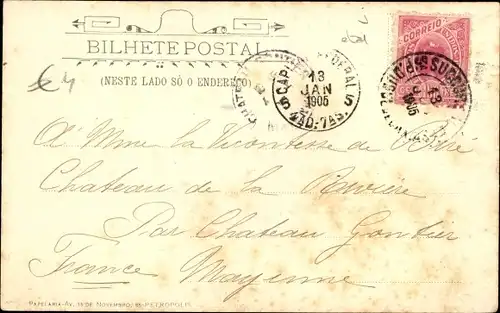 CORREIO
BILHETE POSTAL
(NESTE LADO SÓ O ENDEREÇO)
CAP. FEDERAL
13
JAN
1905
À Mme la Vicomtesse de
Chateau de la Rivière
Par Chateau Gontier
France Mayenne
PAPELARIA-AV. 15 DE NOVEMBRO, PETROPOLIS